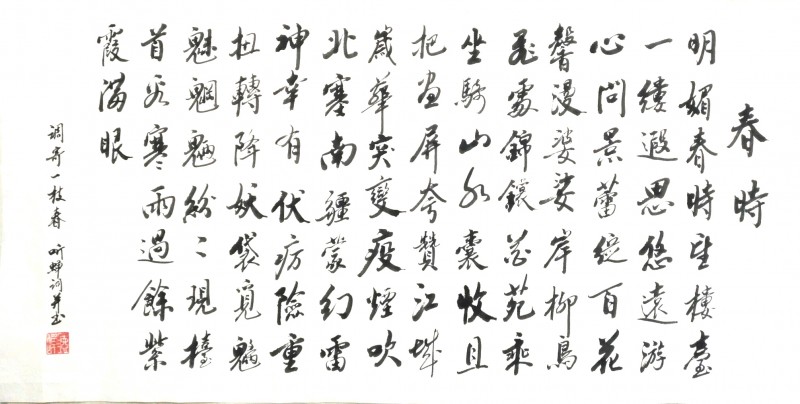 春時
明媚春時望樓臺
一縷遐思悠遠游
心問景蕾綻百花
馨漫婆娑岸柳鳥
飛處錦鑲苑乘
坐騎山水囊收且
把畫屏夸贊江城
歲華突變疫煙吹
北塞南疆蒙幻雷
神幸有伏疠險重
扭轉降妖袋覓魑
魅魍魎紛〻現擡
首看寒雨過餘紫
霞滿眼
调寄一枝春 昕词并书